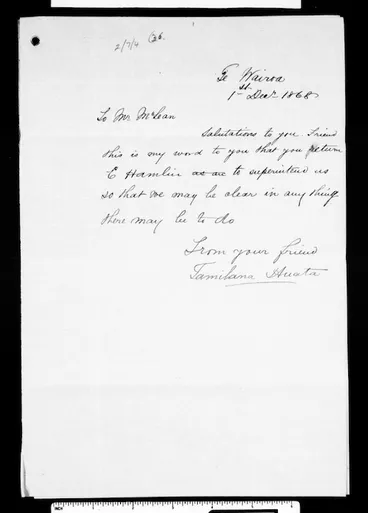 2/7/4 (26.
Te Wairoa
1st Decr 1868
To Mr McLean
Salutations to you friend
this is my word to you that you return
E Hamlin as are to superintend us
so that we may be clear in any thing
there may be to do
From your friend
Tamihana Huata